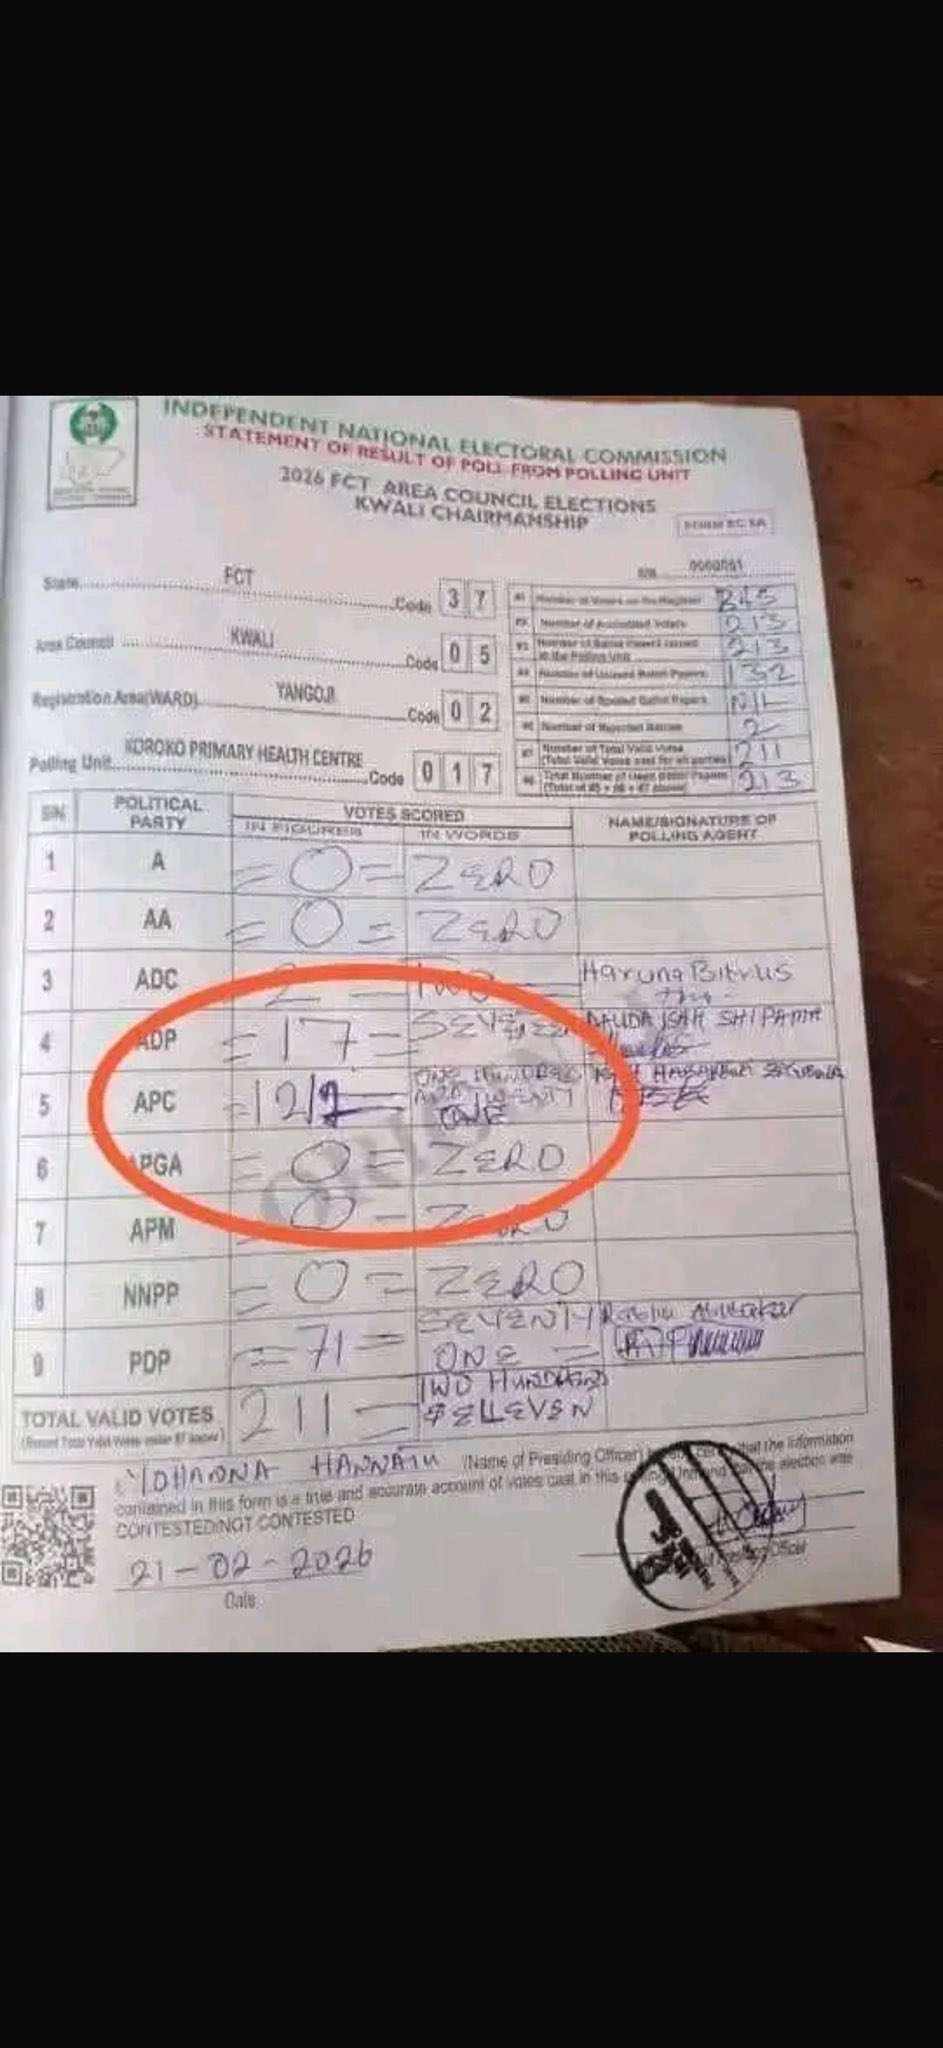 INDEPENDENT NATIONAL ELECTORAL COMMISSION
STATEMENT OF RESULT OF POLL FROM POLLING UNIT
2026 FCT AREA COUNCIL ELECTIONS
KWALI CHAIRMANSHIP
FORM EC 8A
State FCT Code 3 7
S/N 0000051
Area Council KWALI Code 0 5
Registration Area(WARD) YANGOJI Code 0 2
Polling Unit KOROKO PRIMARY HEALTH CENTRE Code 0 1 7
Number of Voters on the Register
Number of Accredited Voters 213
Number of Ballot Papers Issued to the Polling Unit
Number of Unused Ballot Papers 132
Number of Spoiled Ballot Papers NIL
Number of Rejected Ballots 2
Number of Total Valid Votes (Total Valid Votes cast for all parties) 211
Total Number of Used Ballot Papers 213
S/N POLITICAL PARTY VOTES SCORED NAME/SIGNATURE OF POLLING AGENT
IN FIGURES IN WORDS
1 A = 0 = ZERO
2 AA = 0 = ZERO
3 ADC 2 = TWO Haruna Bitrus
4 ADP = 17 = SEVENTEEN DAUDA ISAH SHIPAMA
5 APC ONE HUNDRED AND TWENTY ONE
6 APGA = 0 = ZERO
7 APM 0 = ZERO
8 NNPP = 0 = ZERO
9 PDP = 71 = SEVENTY ONE =
TOTAL VALID VOTES 211 = TWO HUNDRED
YOHANNA HANNATU (Name of Presiding Officer) that the information
contained in this form is a true and accurate account of votes cast in this and that the election was
CONTESTED/NOT CONTESTED
21-02-2026
Date
ORIGINAL